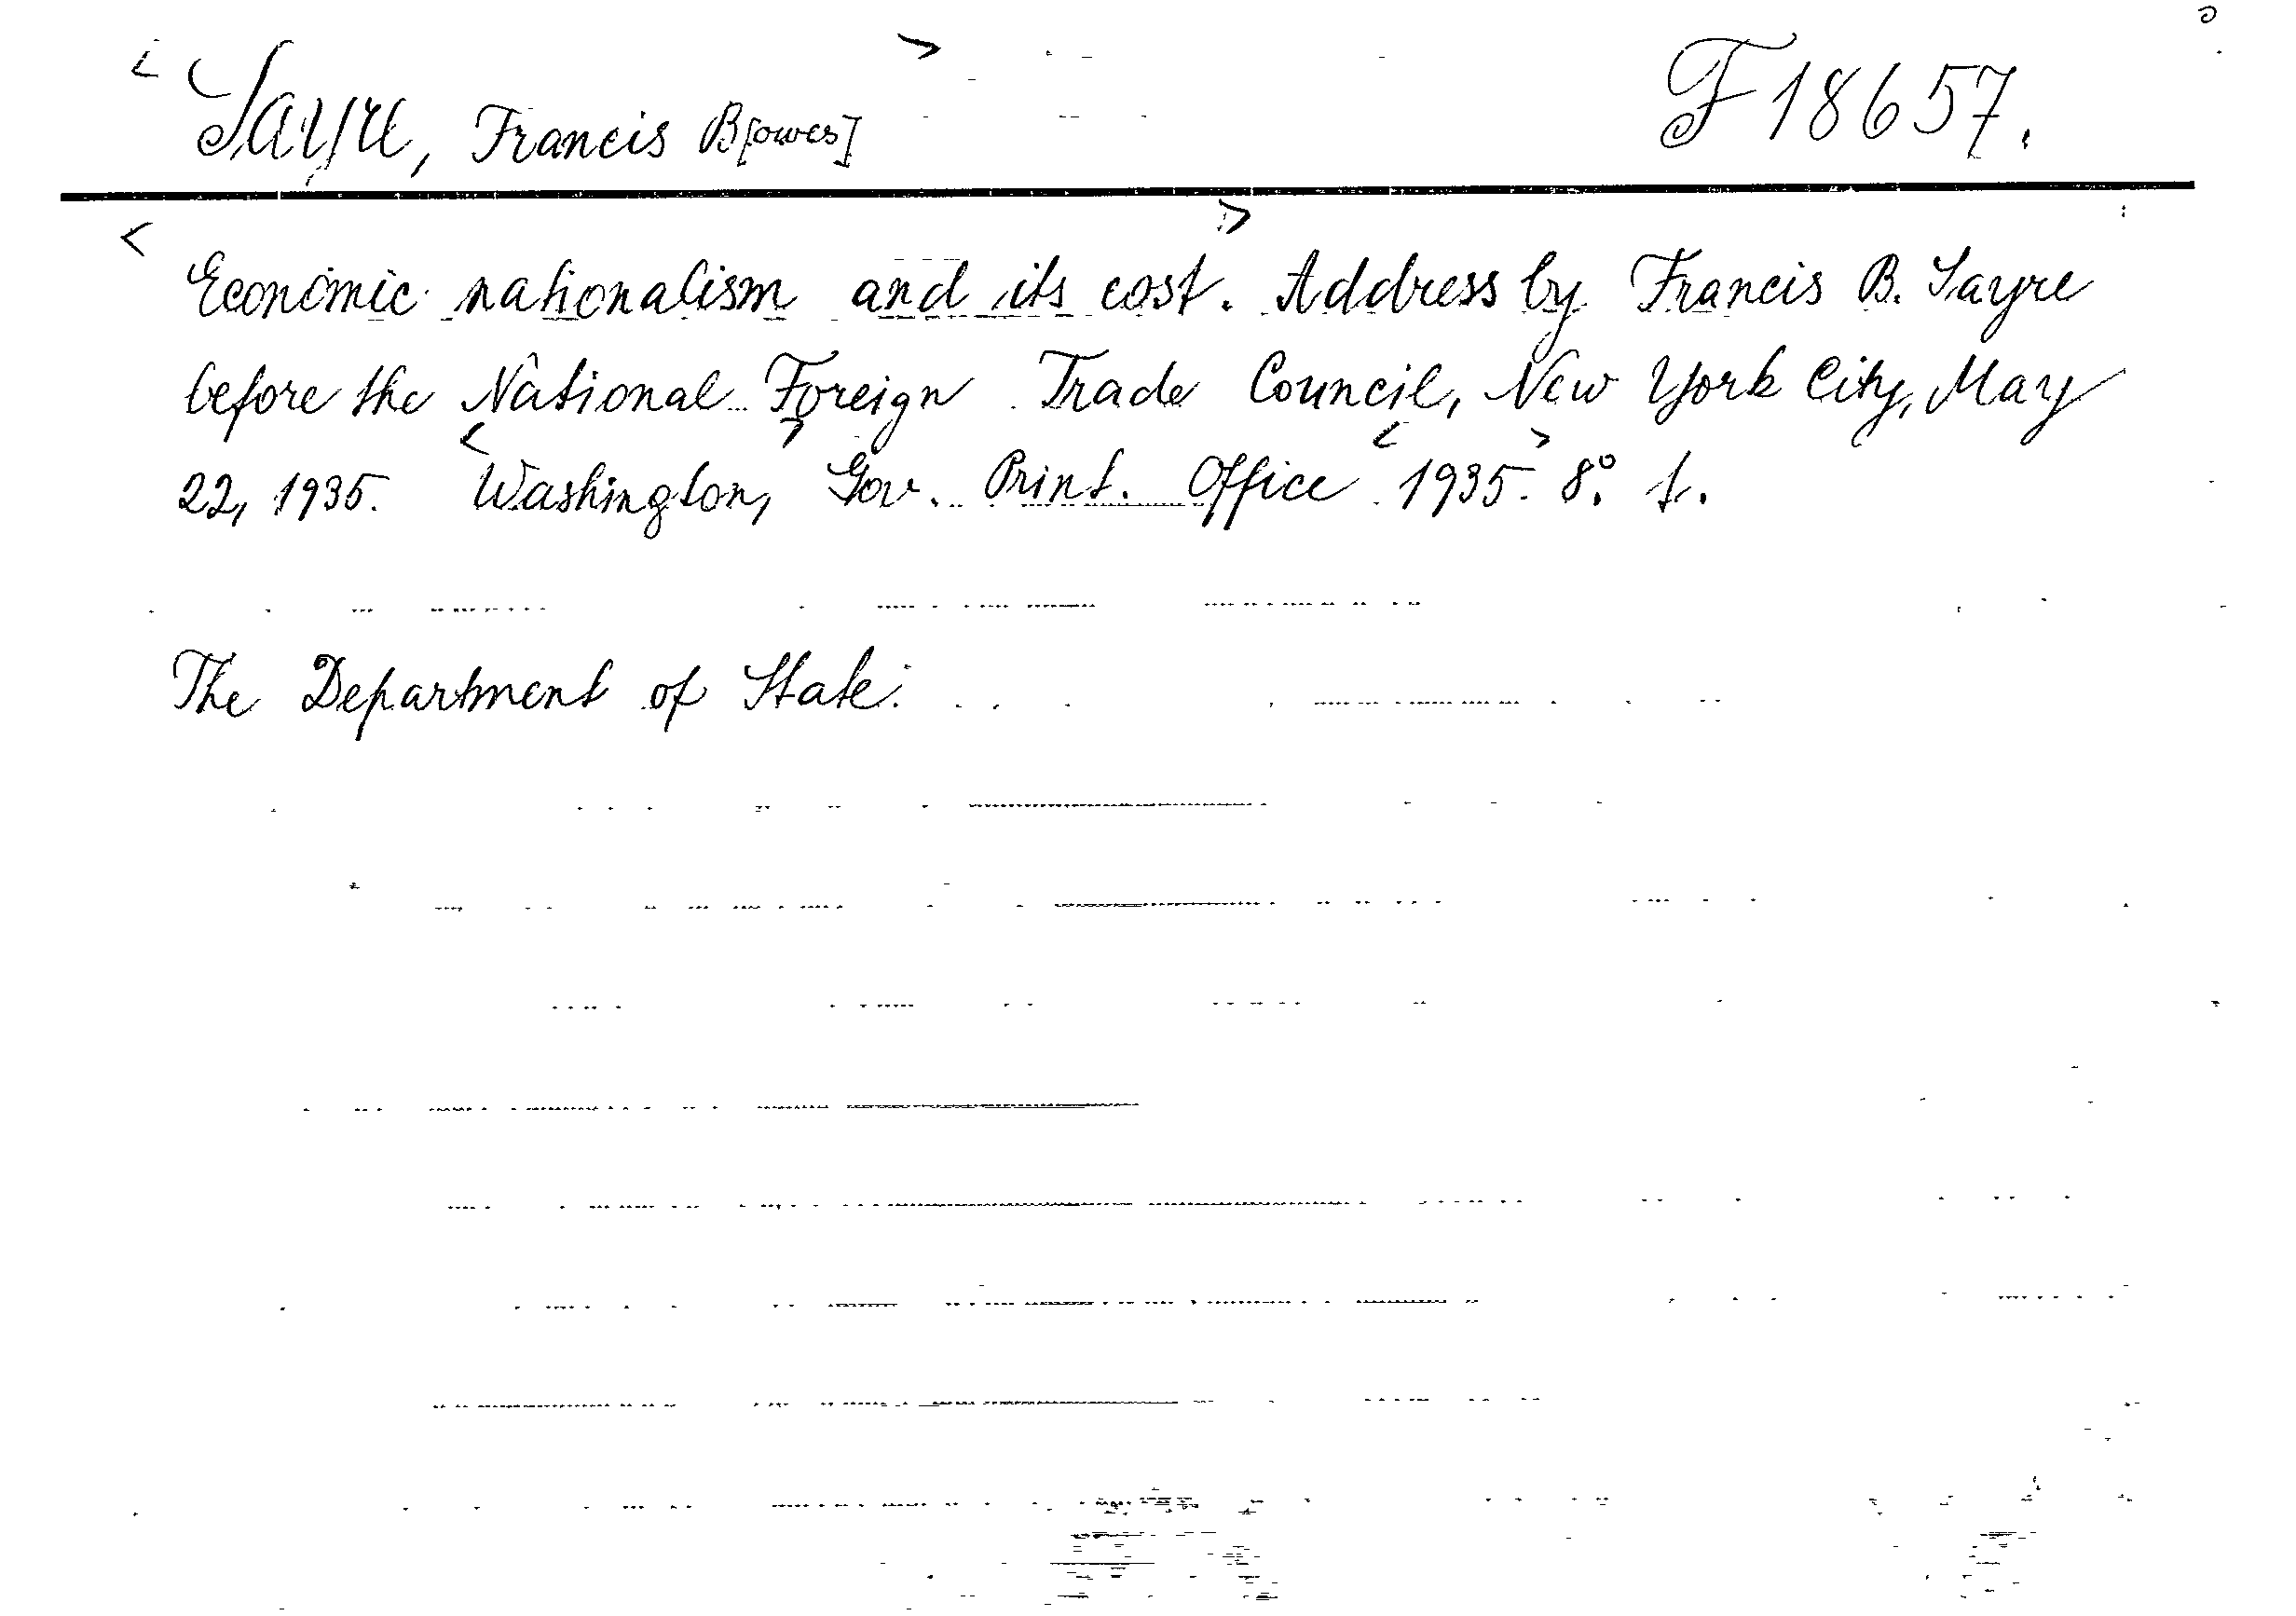 < Sayre, Francis B[owes] > F 18657.
< Economic nationalism and its cost. > Address by Francis B. Sayre
before the National Foreign Trade Council, New York City, May
22, 1935. < Washington, > Gov. Print. Office < 1935. > 8°.
The Department of State.